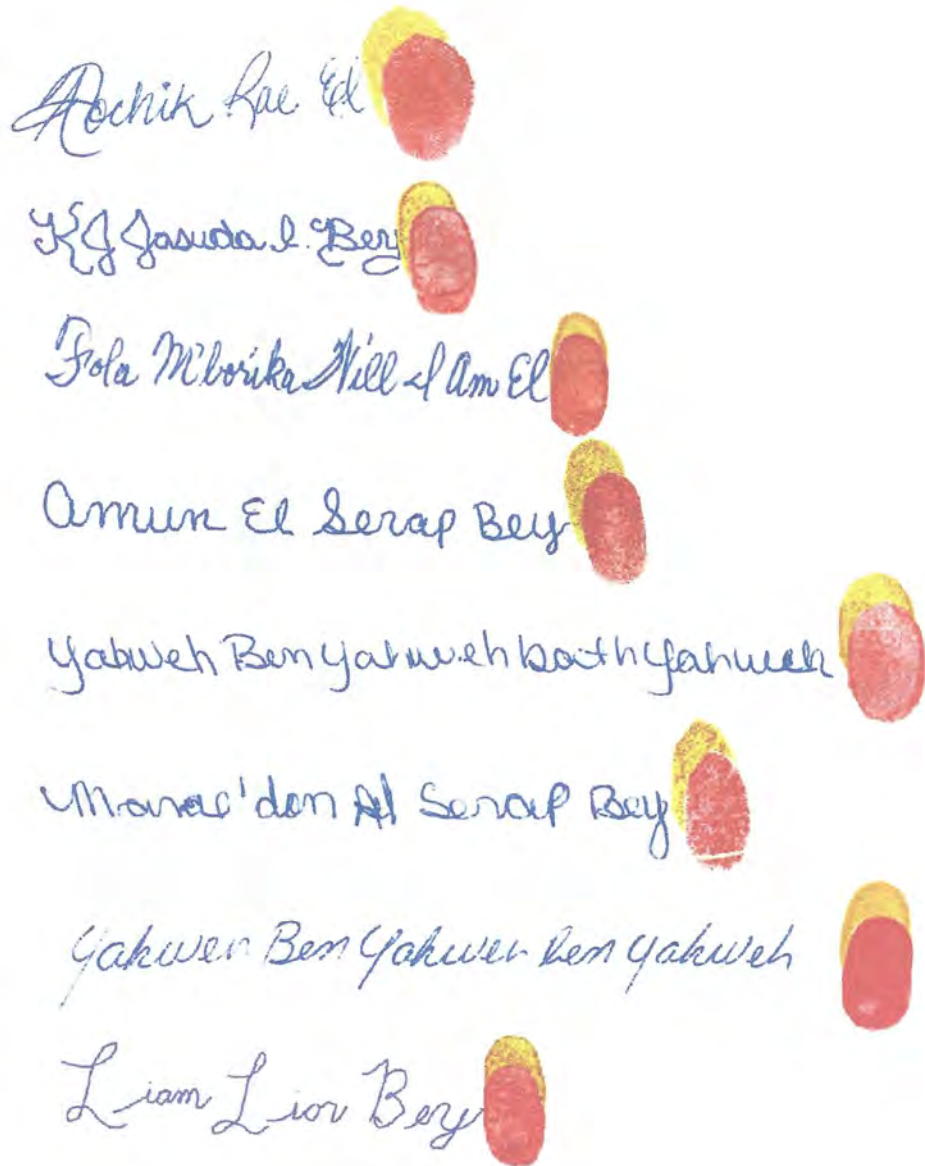 Aochik Rae El
KJ Jasuda I. Bey
Fola M'borika Will I Am El
Amun El Serap Bey
Yahweh Ben Yahweh bathYahweh
Marac'don Al Serap Bey
Yahweh Ben Yahweh ben Yahweh
Liam Lior Bey